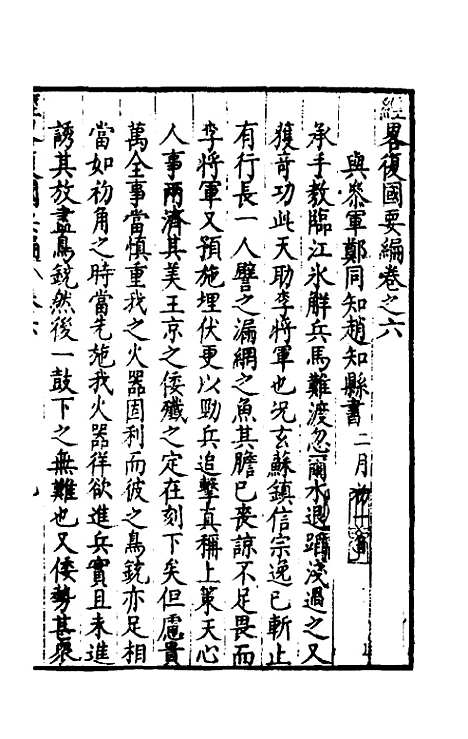 經畧復國要編卷之六
與叅軍鄭同知趙知縣書 二月初一日
承手教臨江氷解兵馬難渡忽爾水退蹈淺過之又
獲竒功此天助李將軍也况玄蘇鎮信宗逸已斬止
有行長一人譬之漏網之魚其膽已喪諒不足畏而
李將軍又預施埋伏更以勁兵追擊真稱上策天心
人事兩濟其美王京之倭殲之定在刻下矣但慮貴
萬全事當慎重我之火器固利而彼之鳥銃亦足相
當如初角之時當先施我火器徉欲進兵實且未進
誘其放盡鳥銃然後一鼓下之無難也又倭勢甚衆